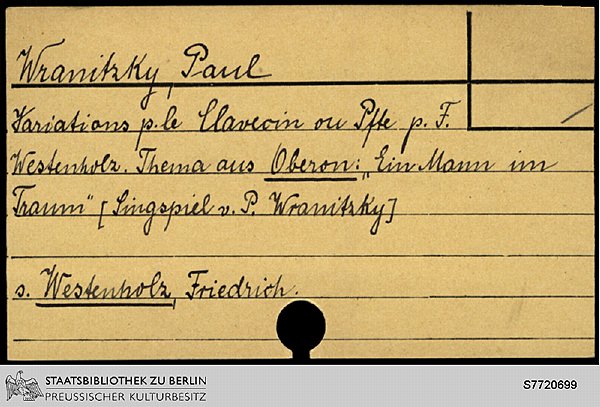 Wranitzky, Paul
Variations p. le Clavecin ou Pfte p. F.
Westenholz. Thema aus Oberon: „Ein Mann im
Traum" [Singspiel v. P. Wranitzky]
s. Westenholz, Friedrich.
STAATSBIBLIOTHEK ZU BERLIN
PREUSSISCHER KULTURBESITZ
S7720699